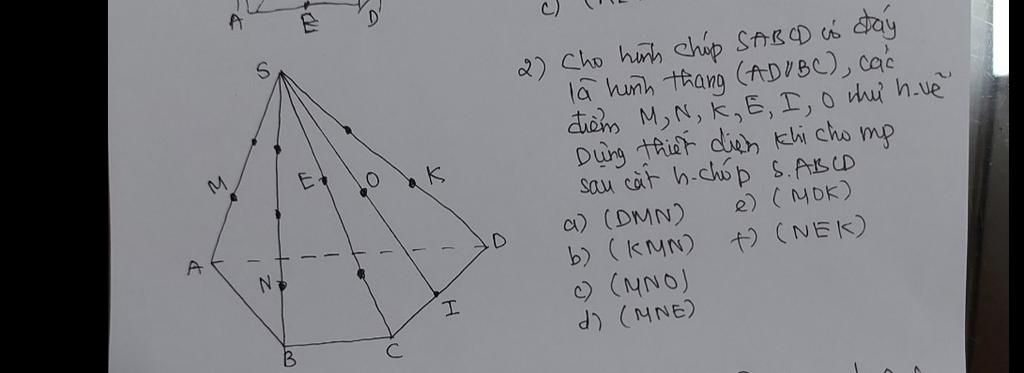 A E D
c)
S
M
E O K
A D
N
I
B C
2) Cho hình chóp SABCD có đáy
là hình thang (AD//BC), các
điểm M, N, K, E, I, O như h.vẽ
Dựng thiết diện khi cho mp
sau cắt h.chóp S.ABCD
a) (DMN) e) (MOK)
b) (KMN) f) (NEK)
c) (MNO)
d) (MNE)